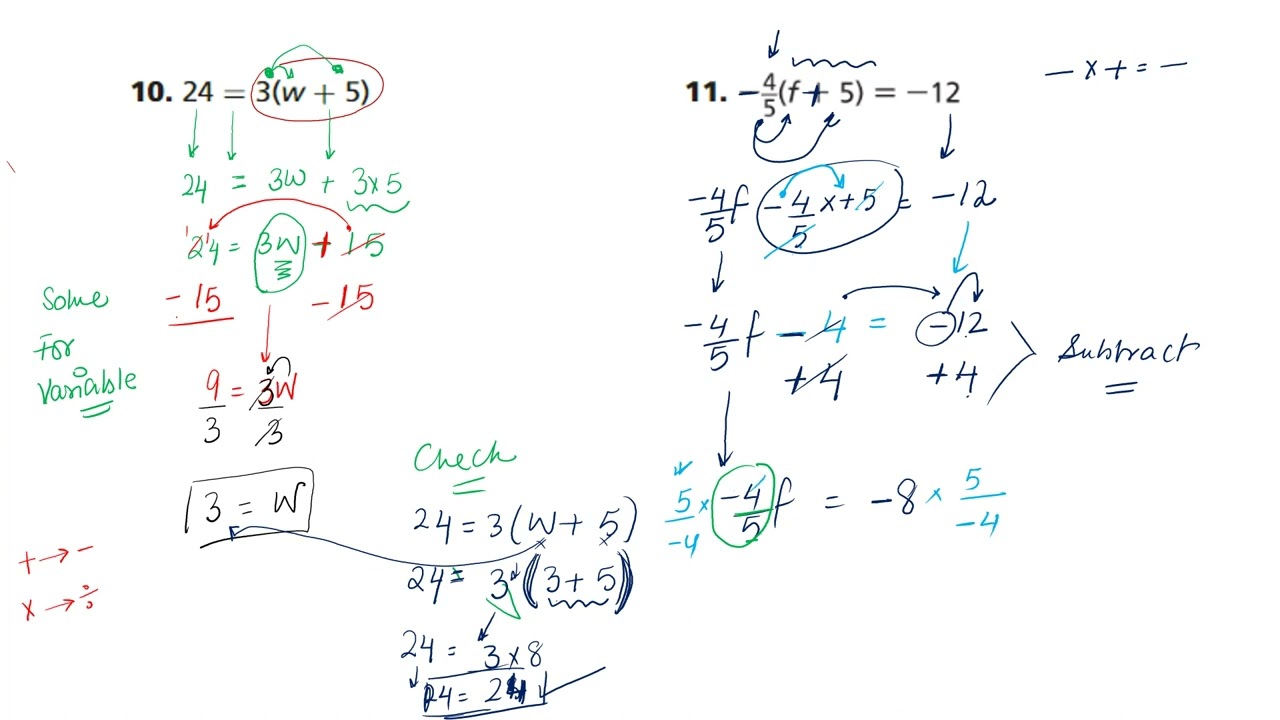 10. 24 = 3(w + 5)
24 = 3w + 3x5
24 = 3w + 15
- 15 - 15
Some
For
Variable
9/3 = 3w/3
3 = w
+ → -
x → ÷
Check
24 = 3(w + 5)
24 = 3(3 + 5)
24 = 3 x 8
24 = 24
11. -4/5(f + 5) = -12
- x + = -
-4/5 f -4/5 x +5 = -12
-4/5 f - 4 = -12
+4 +4
Subtract
5/-4 x -4/5 f = -8 x 5/-4